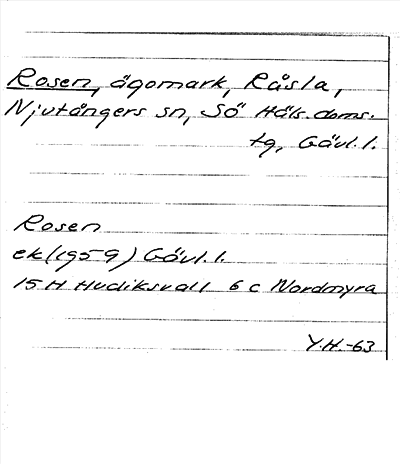 Rosen, ägomark, Råsla,
Njutångers sn, Sö Häls. doms.
tg, Gävl. l.
Rosen
ek (1959) Gävl. l.
15 H Hudiksvall 6 c Nordmyra
Y.H.-63